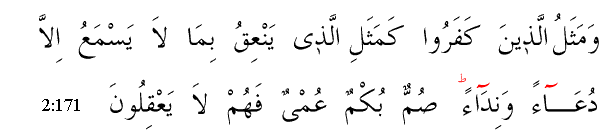 وَمَثَلُ الَّذِينَ كَفَرُوا كَمَثَلِ الَّذِى يَنْعِقُ بِمَا لاَ يَسْمَعُ اِلاَّ
دُعَـــآءً وَنِدَآءً ط صُمٌّ بُكْمٌ عُمْىٌ فَهُمْ لاَ يَعْقِلُونَ 2:171